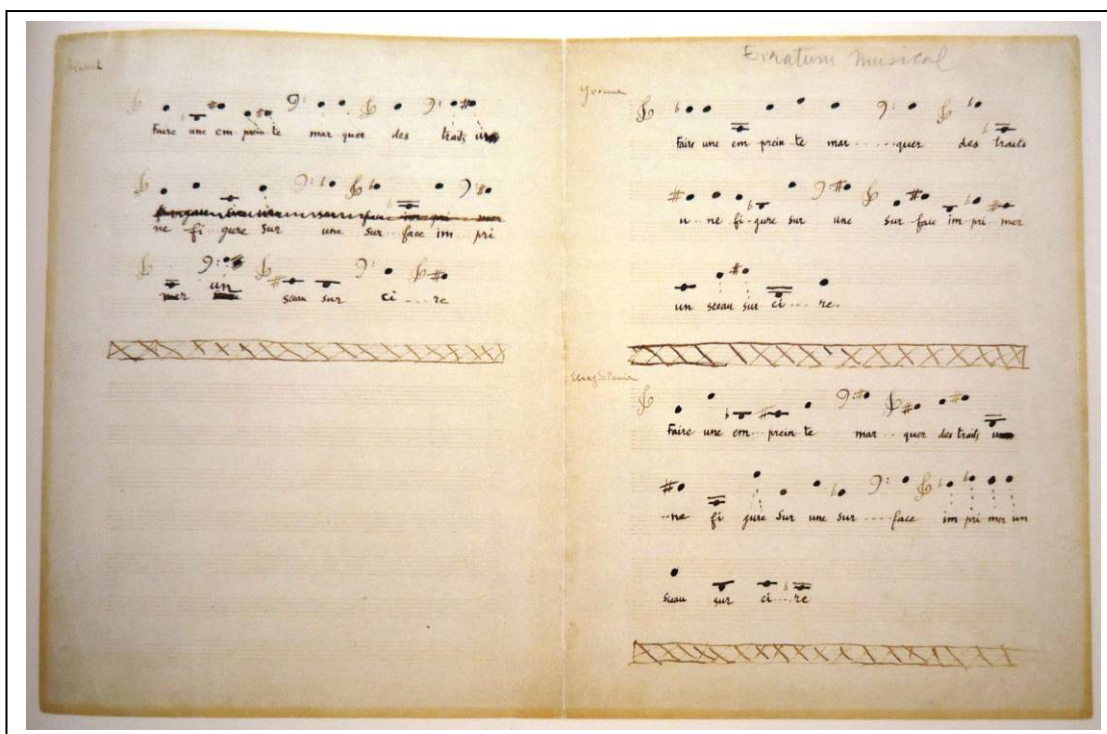 Marcel
Faire une em prein te mar quer des traits u
ne fi gure sur une sur...face im...pri
mer un sceau sur ci....re
Erratum Musical
Yvonne
Faire une em prein te mar.....quer des traits
u...ne fi-gure sur une sur-face im-pri-mer
un sceau sur ci....re.
Magdeleine
Faire une em...prein te mar...quer des traits u
..ne fi gure sur une sur.....face im pri mer un
sceau sur ci....re